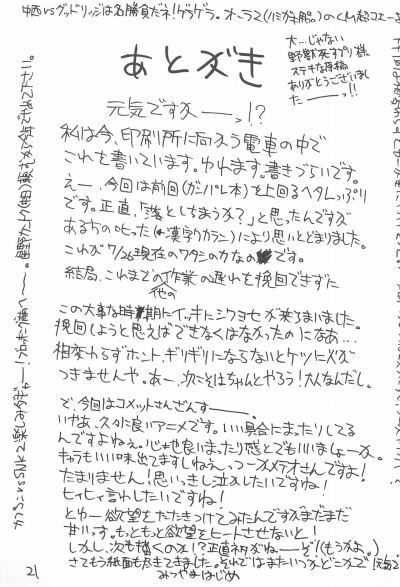 中西vsグッドリッジは名勝負だネ!ゲラゲラ。
あとがき
大…じゃない
野獣死すプリ様
ステキな原稿
ありがとうございまし
たーーっ!!
元気ですかーーっ!?
私は今、印刷所に向かう電車の中で
これを書いています。ゆれます。書きづらいです。
えー、今回は前回(ガンパレ本)を上回るヘタレっぷり
です。正直、「落としちまうか?」と思ったんですが
あるちの叱った(漢字ワカラン)により思いとどまりました。
これが7/26現在のワタシのカなのです。
結局、これまでの他の作業の遅れを挽回できずに
この大事な時期にイッキにシワヨセが来ちまいました。
挽回しようと思えばできなくはなかったのになあ…
相変わらずホント、ギリギリにならないとケツに火が
つきませんや。あー、次こそはちゃんとやろう!大人なんだし。
で、今回はコメットさんざんすーー。
いやあ、久々に良いアニメです。いい具合にまったりしてる
んですよねえ。心地良いまったり感とでもいいましょーか。
キャラもいい味出てますしねえ、つーかメテオさんですよ!
たまりません!思いっきし泣入したいですね!
ヒィヒィ言わしたいですね!
とゆー欲望をたたきつけてみたんですがまだまだ
甘いっす。もっともっと欲望をヒートさせないと!
しかし、次も描くのか!?正直ネタがねーーぞ!(もうかよ。)
さてもう紙面も尽きてきました。それではまたいつかどこかで
みつやまはじめ
21